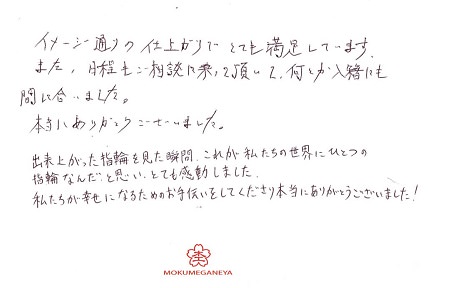 イメージ通りの仕上がりでとても満足しています。
また、日程もご相談に乗って頂いて、何とか入籍にも
間に合いました。
本当にありがとうございました。
出来上がった指輪を見た瞬間、これが私たちの世界にひとつの
指輪なんだと思い、とても感動しました。
私たちが幸せになるためのお手伝いをしてくださり本当にありがとうございました！
木
MOKUMEGANEYA